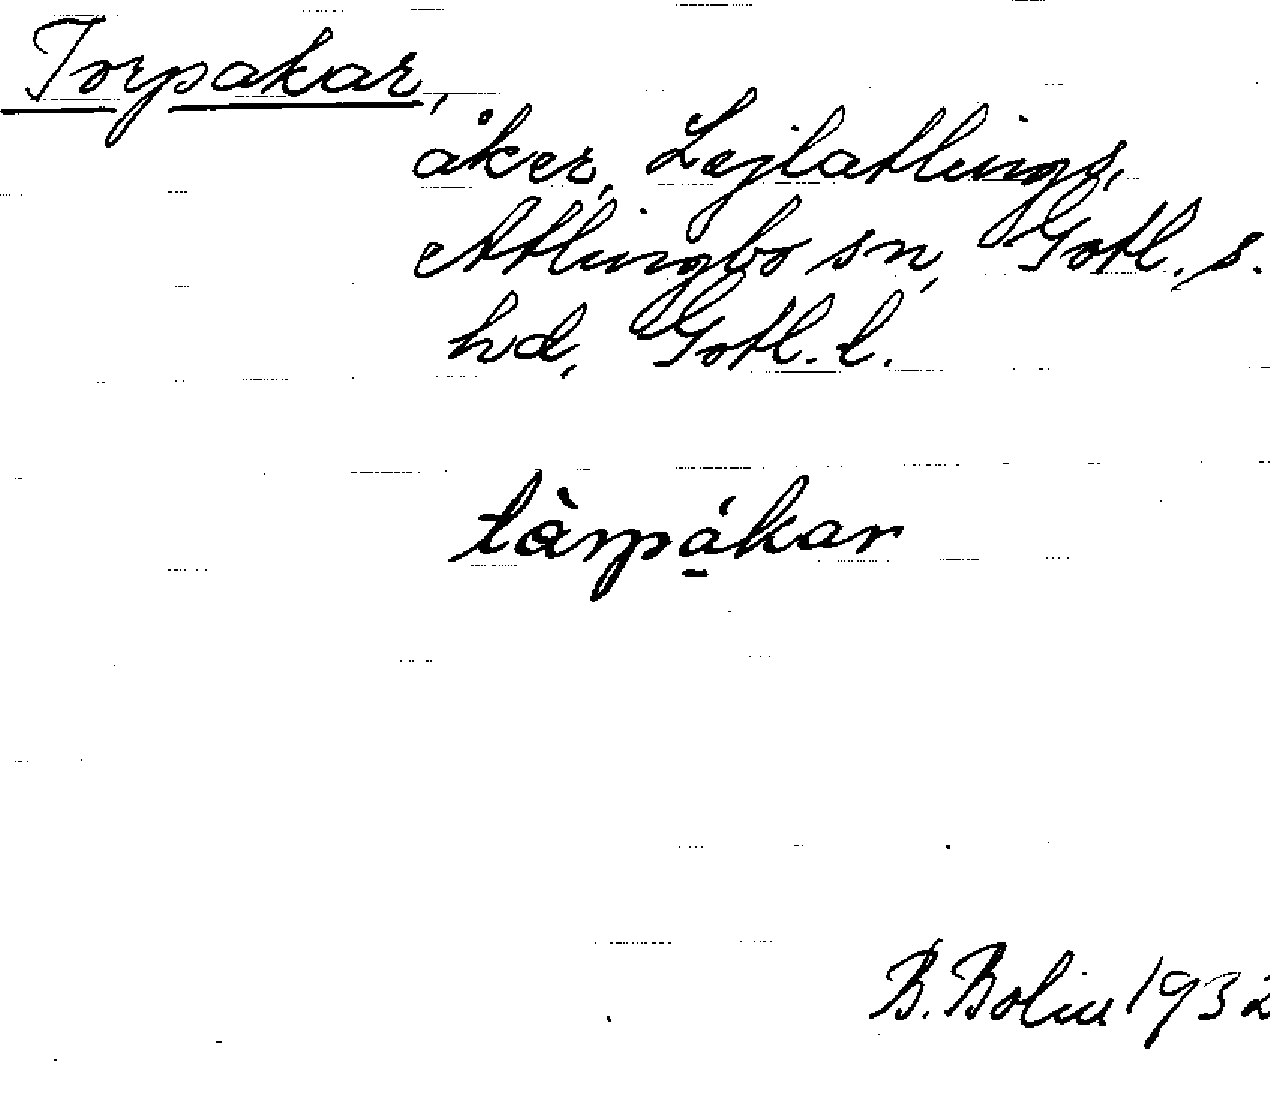 Torpakar,
åker, Lejlatlings,
Atlingbo sn, Gotl. s.
hd, Gotl. l.
tàrpá̱kar
B. Bolin 1932